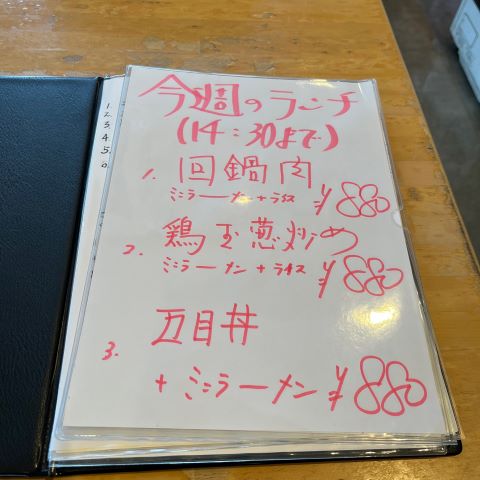 今週のランチ
(14:30まで)
1. 回鍋肉
ミニラーメン+ライス ¥880
2. 鶏玉葱炒め
ミニラーメン+ライス ¥880
3. 五目丼
+ミニラーメン ¥880
1.
2.
3.
4.
5.